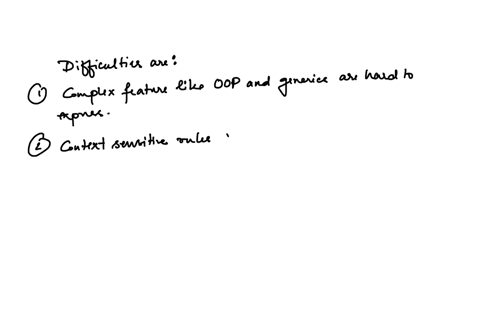 Difficulties are:
① Complex feature like OOP and generics are hard to
express.
② Context sensitive rules.